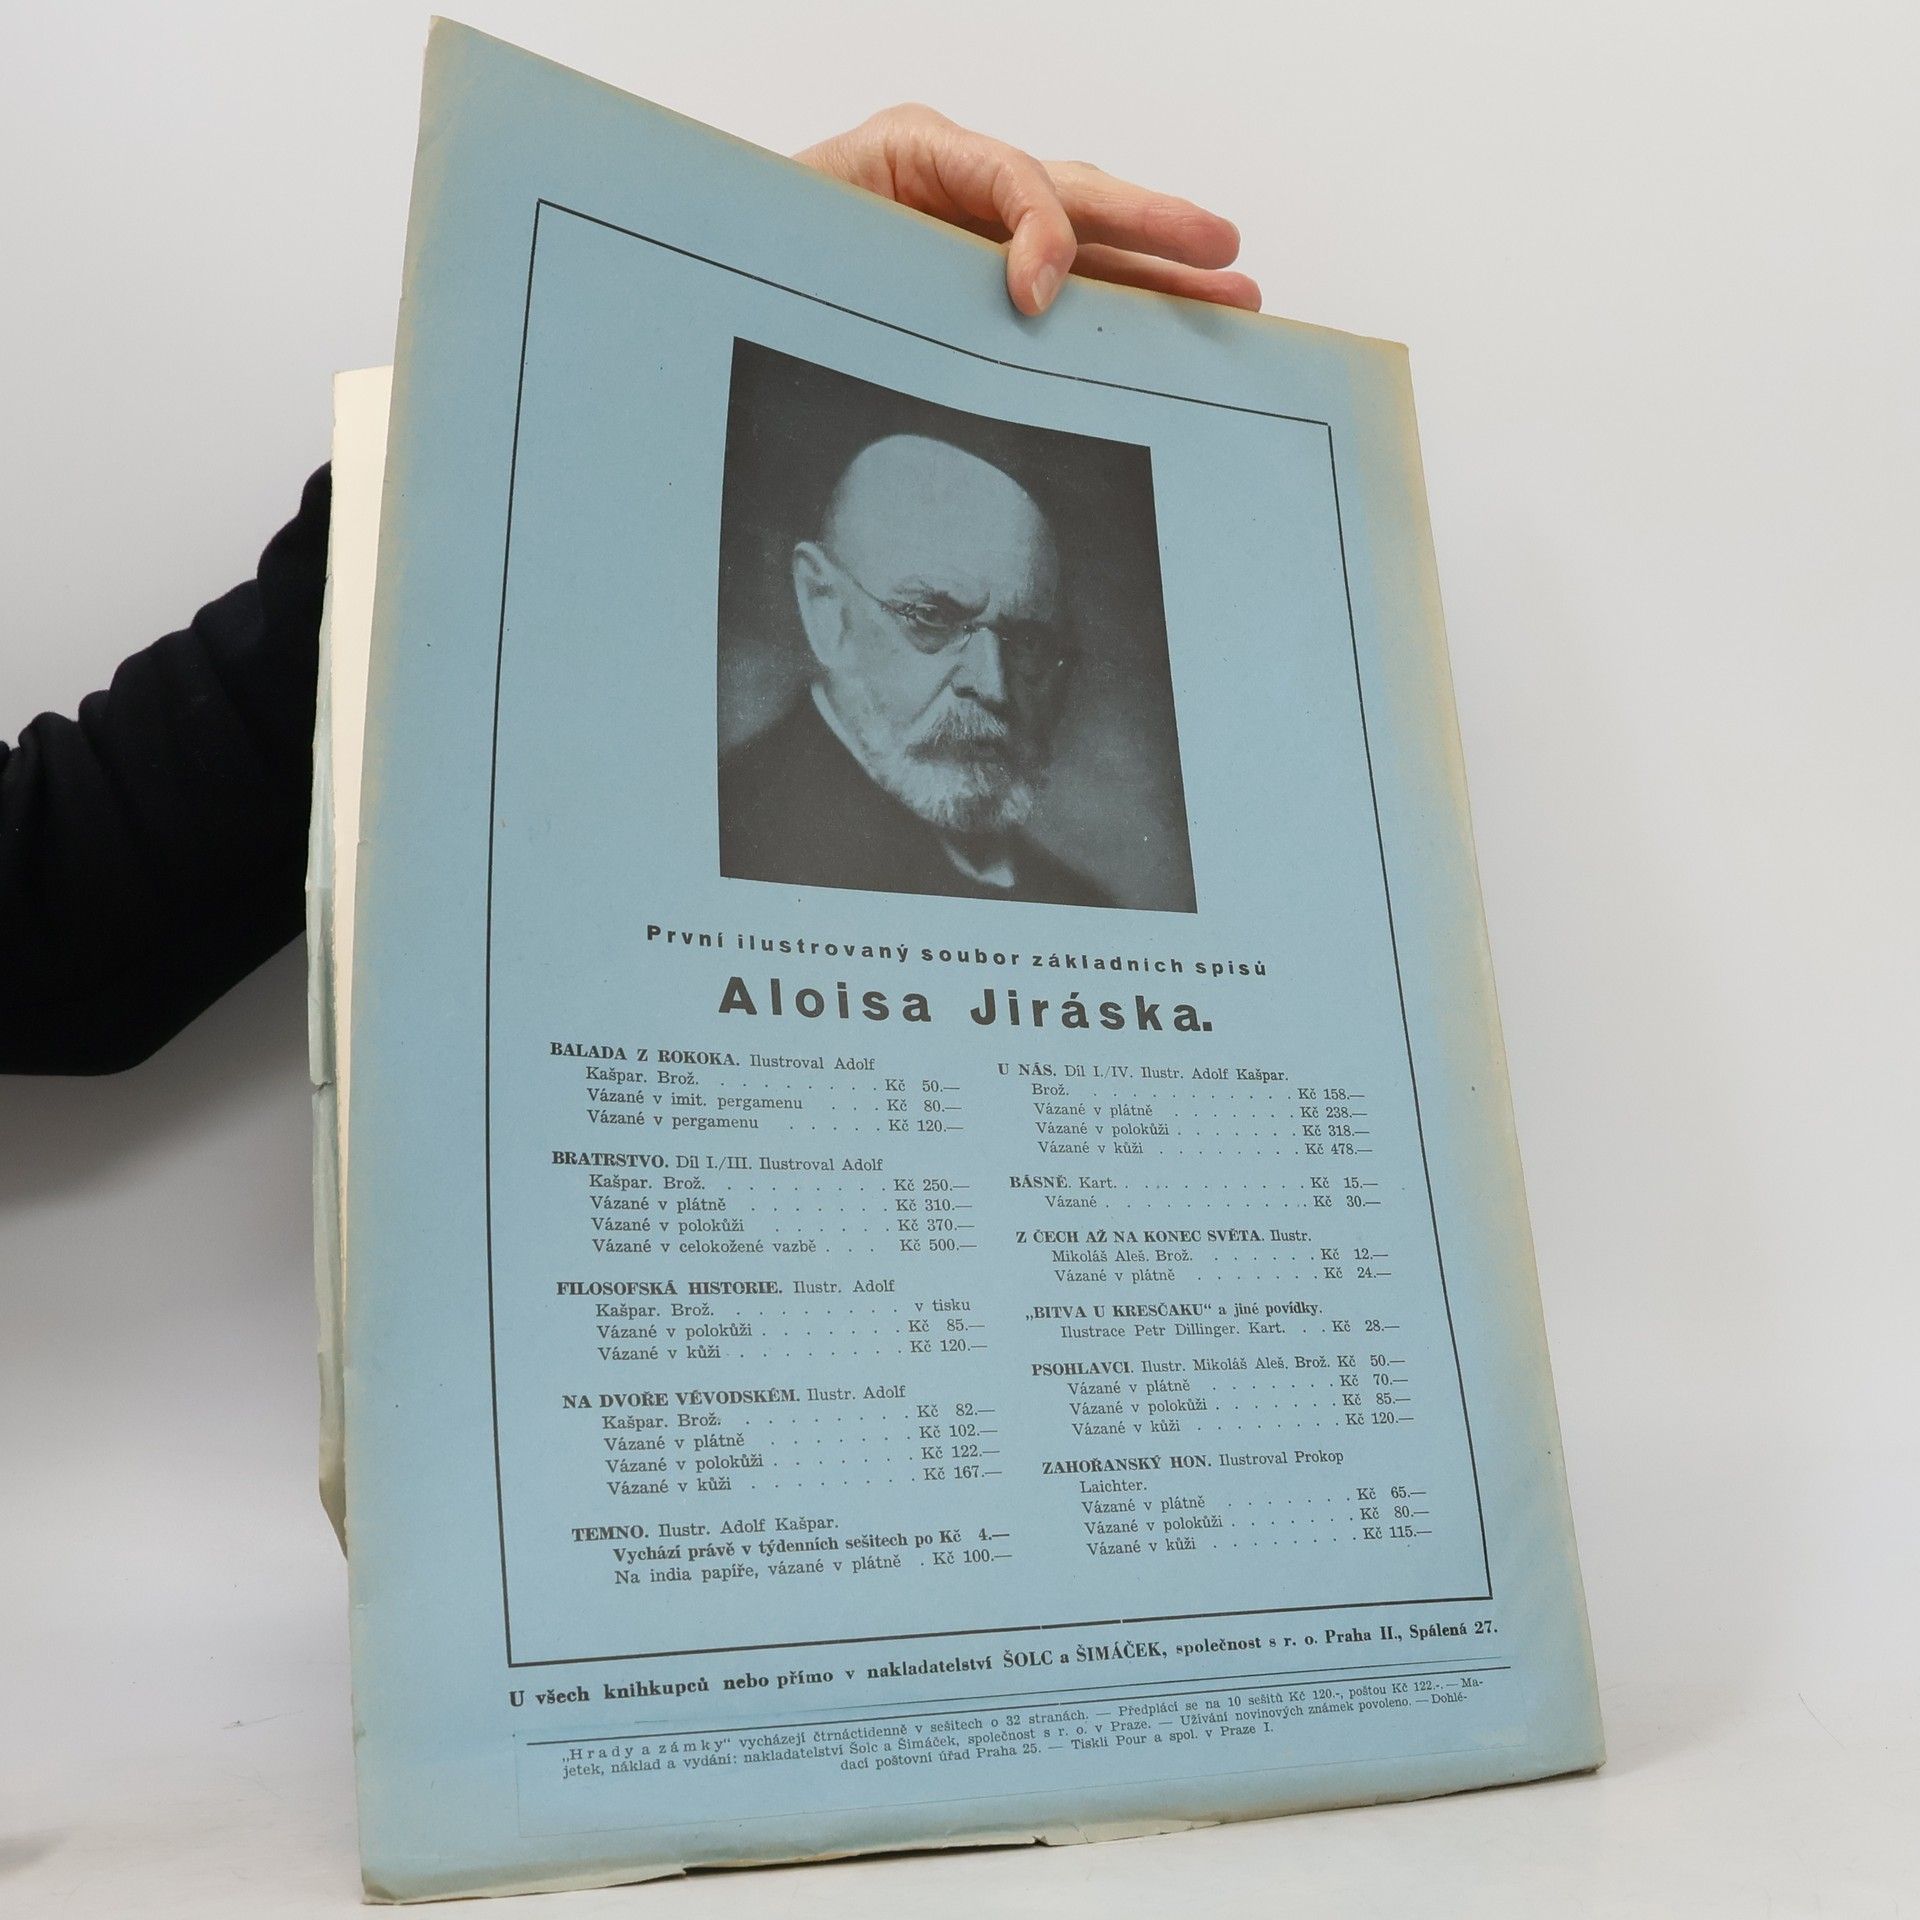 První ilustrovaný soubor základních spisů
Aloisa Jiráska.
BALADA Z ROKOKA. Ilustroval Adolf
Kašpar. Brož. . . . . . . . . . Kč 50.—
Vázané v imit. pergamenu . . . Kč 80.—
Vázané v pergamenu . . . . . Kč 120.—
BRATRSTVO. Díl I./III. Ilustroval Adolf
Kašpar. Brož. . . . . . . . . Kč 250.—
Vázané v plátně . . . . . . . Kč 310.—
Vázané v polokůži . . . . . . Kč 370.—
Vázané v celokožené vazbě . . . Kč 500.—
FILOSOFSKÁ HISTORIE. Ilustr. Adolf
Kašpar. Brož. . . . . . . . . v tisku
Vázané v polokůži . . . . . . . Kč 85.—
Vázané v kůži . . . . . . . . . Kč 120.—
NA DVOŘE VÉVODSKÉM. Ilustr. Adolf
Kašpar. Brož. . . . . . . . . Kč 82.—
Vázané v plátně . . . . . . . Kč 102.—
Vázané v polokůži . . . . . . . Kč 122.—
Vázané v kůži . . . . . . . . Kč 167.—
TEMNO. Ilustr. Adolf Kašpar.
Vychází právě v týdenních sešitech po Kč 4.—
Na india papíře, vázané v plátně . Kč 100.—
U NÁS. Díl I./IV. Ilustr. Adolf Kašpar.
Brož. . . . . . . . . . . . . Kč 158.—
Vázané v plátně . . . . . . . Kč 238.—
Vázané v polokůži . . . . . . . Kč 318.—
Vázané v kůži . . . . . . . . Kč 478.—
BÁSNĚ. Kart. . . . . . . . . . . . Kč 15.—
Vázané . . . . . . . . . . . . Kč 30.—
Z ČECH AŽ NA KONEC SVĚTA. Ilustr.
Mikoláš Aleš. Brož. . . . . . . Kč 12.—
Vázané v plátně . . . . . . . Kč 24.—
„BITVA U KRESČAKU“ a jiné povídky.
Ilustrace Petr Dillinger. Kart. . . Kč 28.—
PSOHLAVCI. Ilustr. Mikoláš Aleš. Brož. Kč 50.—
Vázané v plátně . . . . . . . Kč 70.—
Vázané v polokůži . . . . . . . Kč 85.—
Vázané v kůži . . . . . . . . Kč 120.—
ZAHOŘANSKÝ HON. Ilustroval Prokop
Laichter.
Vázané v plátně . . . . . . . Kč 65.—
Vázané v polokůži . . . . . . . Kč 80.—
Vázané v kůži . . . . . . . . Kč 115.—
U všech knihkupců nebo přímo v nakladatelství ŠOLC a ŠIMÁČEK, společnost s r. o. Praha II., Spálená 27.
„Hrady a zámky“ vycházejí čtrnáctidenně v sešitech o 32 stranách. — Předplácí se na 10 sešitů Kč 120.-, poštou Kč 122.-. — Ma-
jetek, náklad a vydání: nakladatelství Šolc a Šimáček, společnost s r. o. v Praze. — Užívání novinových známek povoleno. — Dohlé-
dací poštovní úřad Praha 25. — Tiskli Pour a spol. v Praze I.